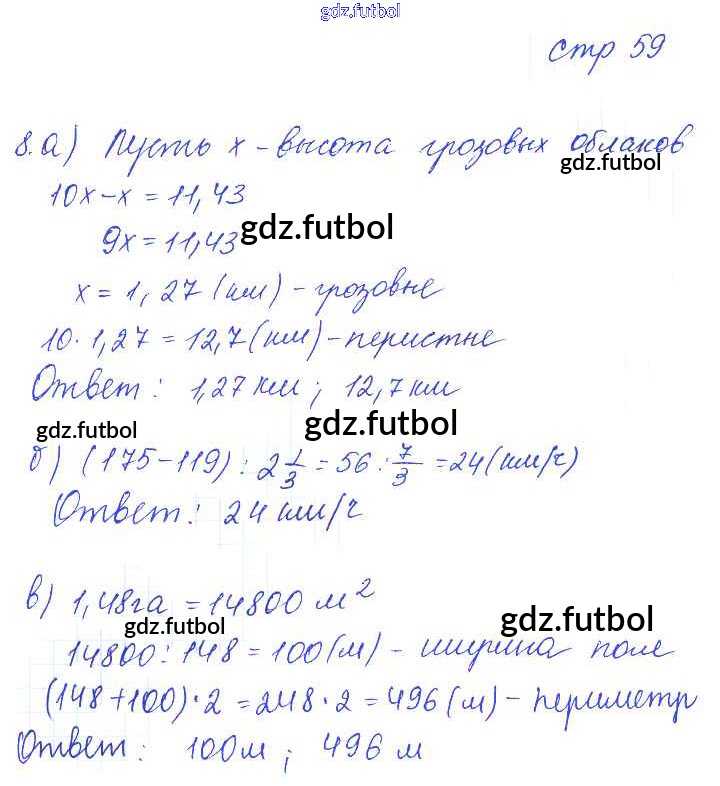 gdz.futbol
стр 59
8.а) Пусть x - высота грозовых облаков
gdz.futbol
10x-x = 11,43
gdz.futbol
9x = 11,43
x = 1,27 (км) - грозовые
10 · 1,27 = 12,7 (км) - перистые
Ответ: 1,27 км; 12,7 км
gdz.futbol
gdz.futbol
б) (175-119) : 2 1/3 = 56 : 7/3 = 24 (км/ч)
Ответ: 24 км/ч
в) 1,48 га = 14800 м²
gdz.futbol
gdz.futbol
14800 : 148 = 100 (м) - ширина поле
(148+100) · 2 = 248 · 2 = 496 (м) - периметр
Ответ: 100 м; 496 м